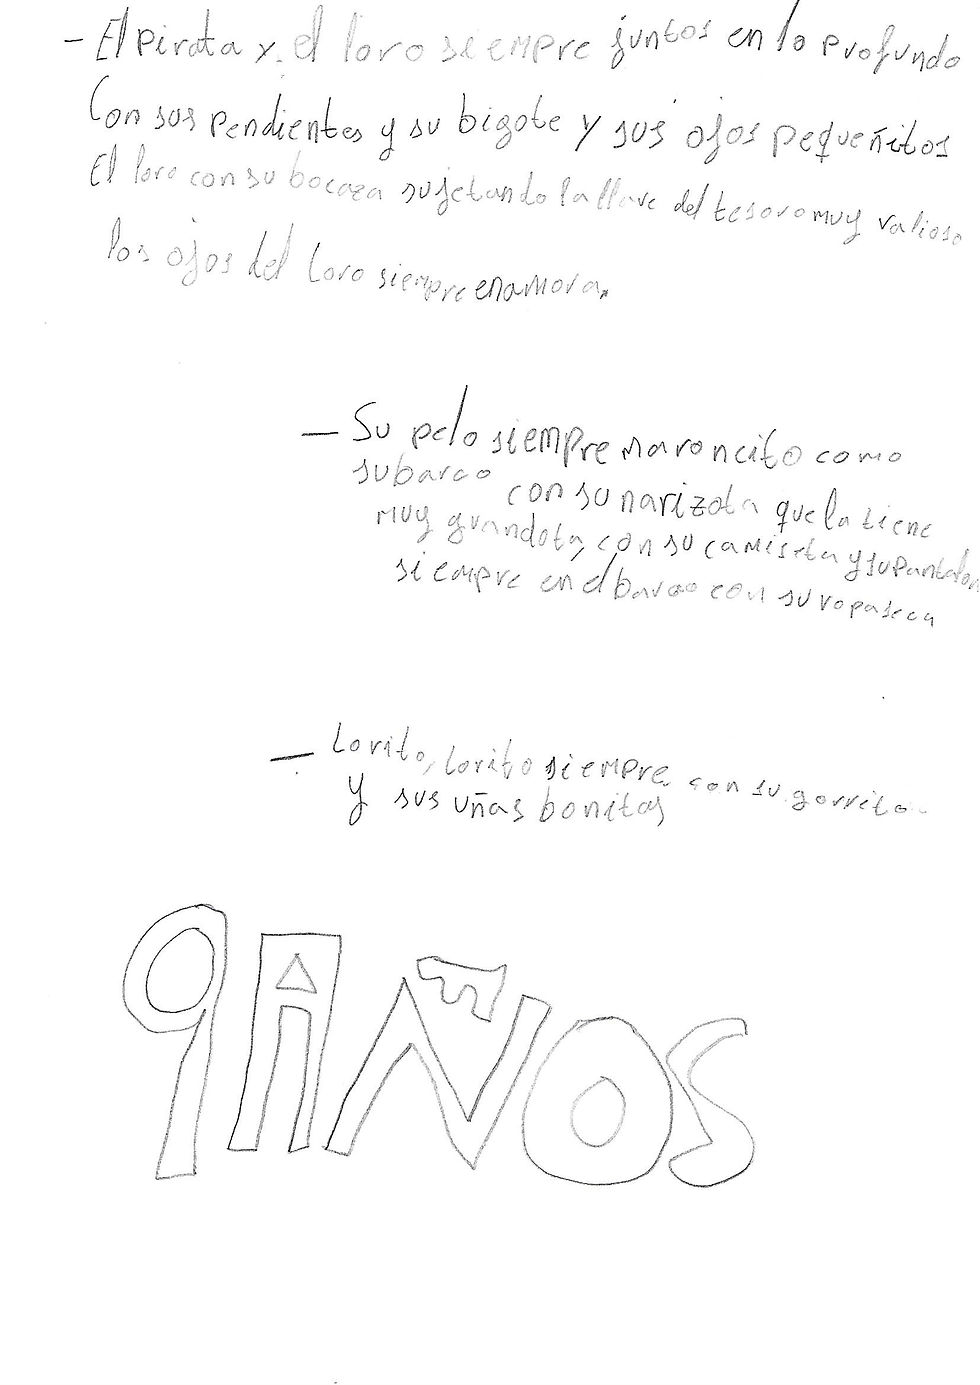 - El pirata y el loro siempre juntos en lo profundo
Con sus pendientes y su bigote y sus ojos pequeñitos
El loro con su bocaza sujetando la llave del tesoro muy valioso
los ojos del loro siempre enamora.
- Su pelo siempre maroncito como
su barco con su narizota que la tiene
muy grandota, con su camiseta y su pantalon
siempre en el barco con su ropa seca
- Lorito, lorito siempre con su gorrito
y sus uñas bonitas
9 AÑOS